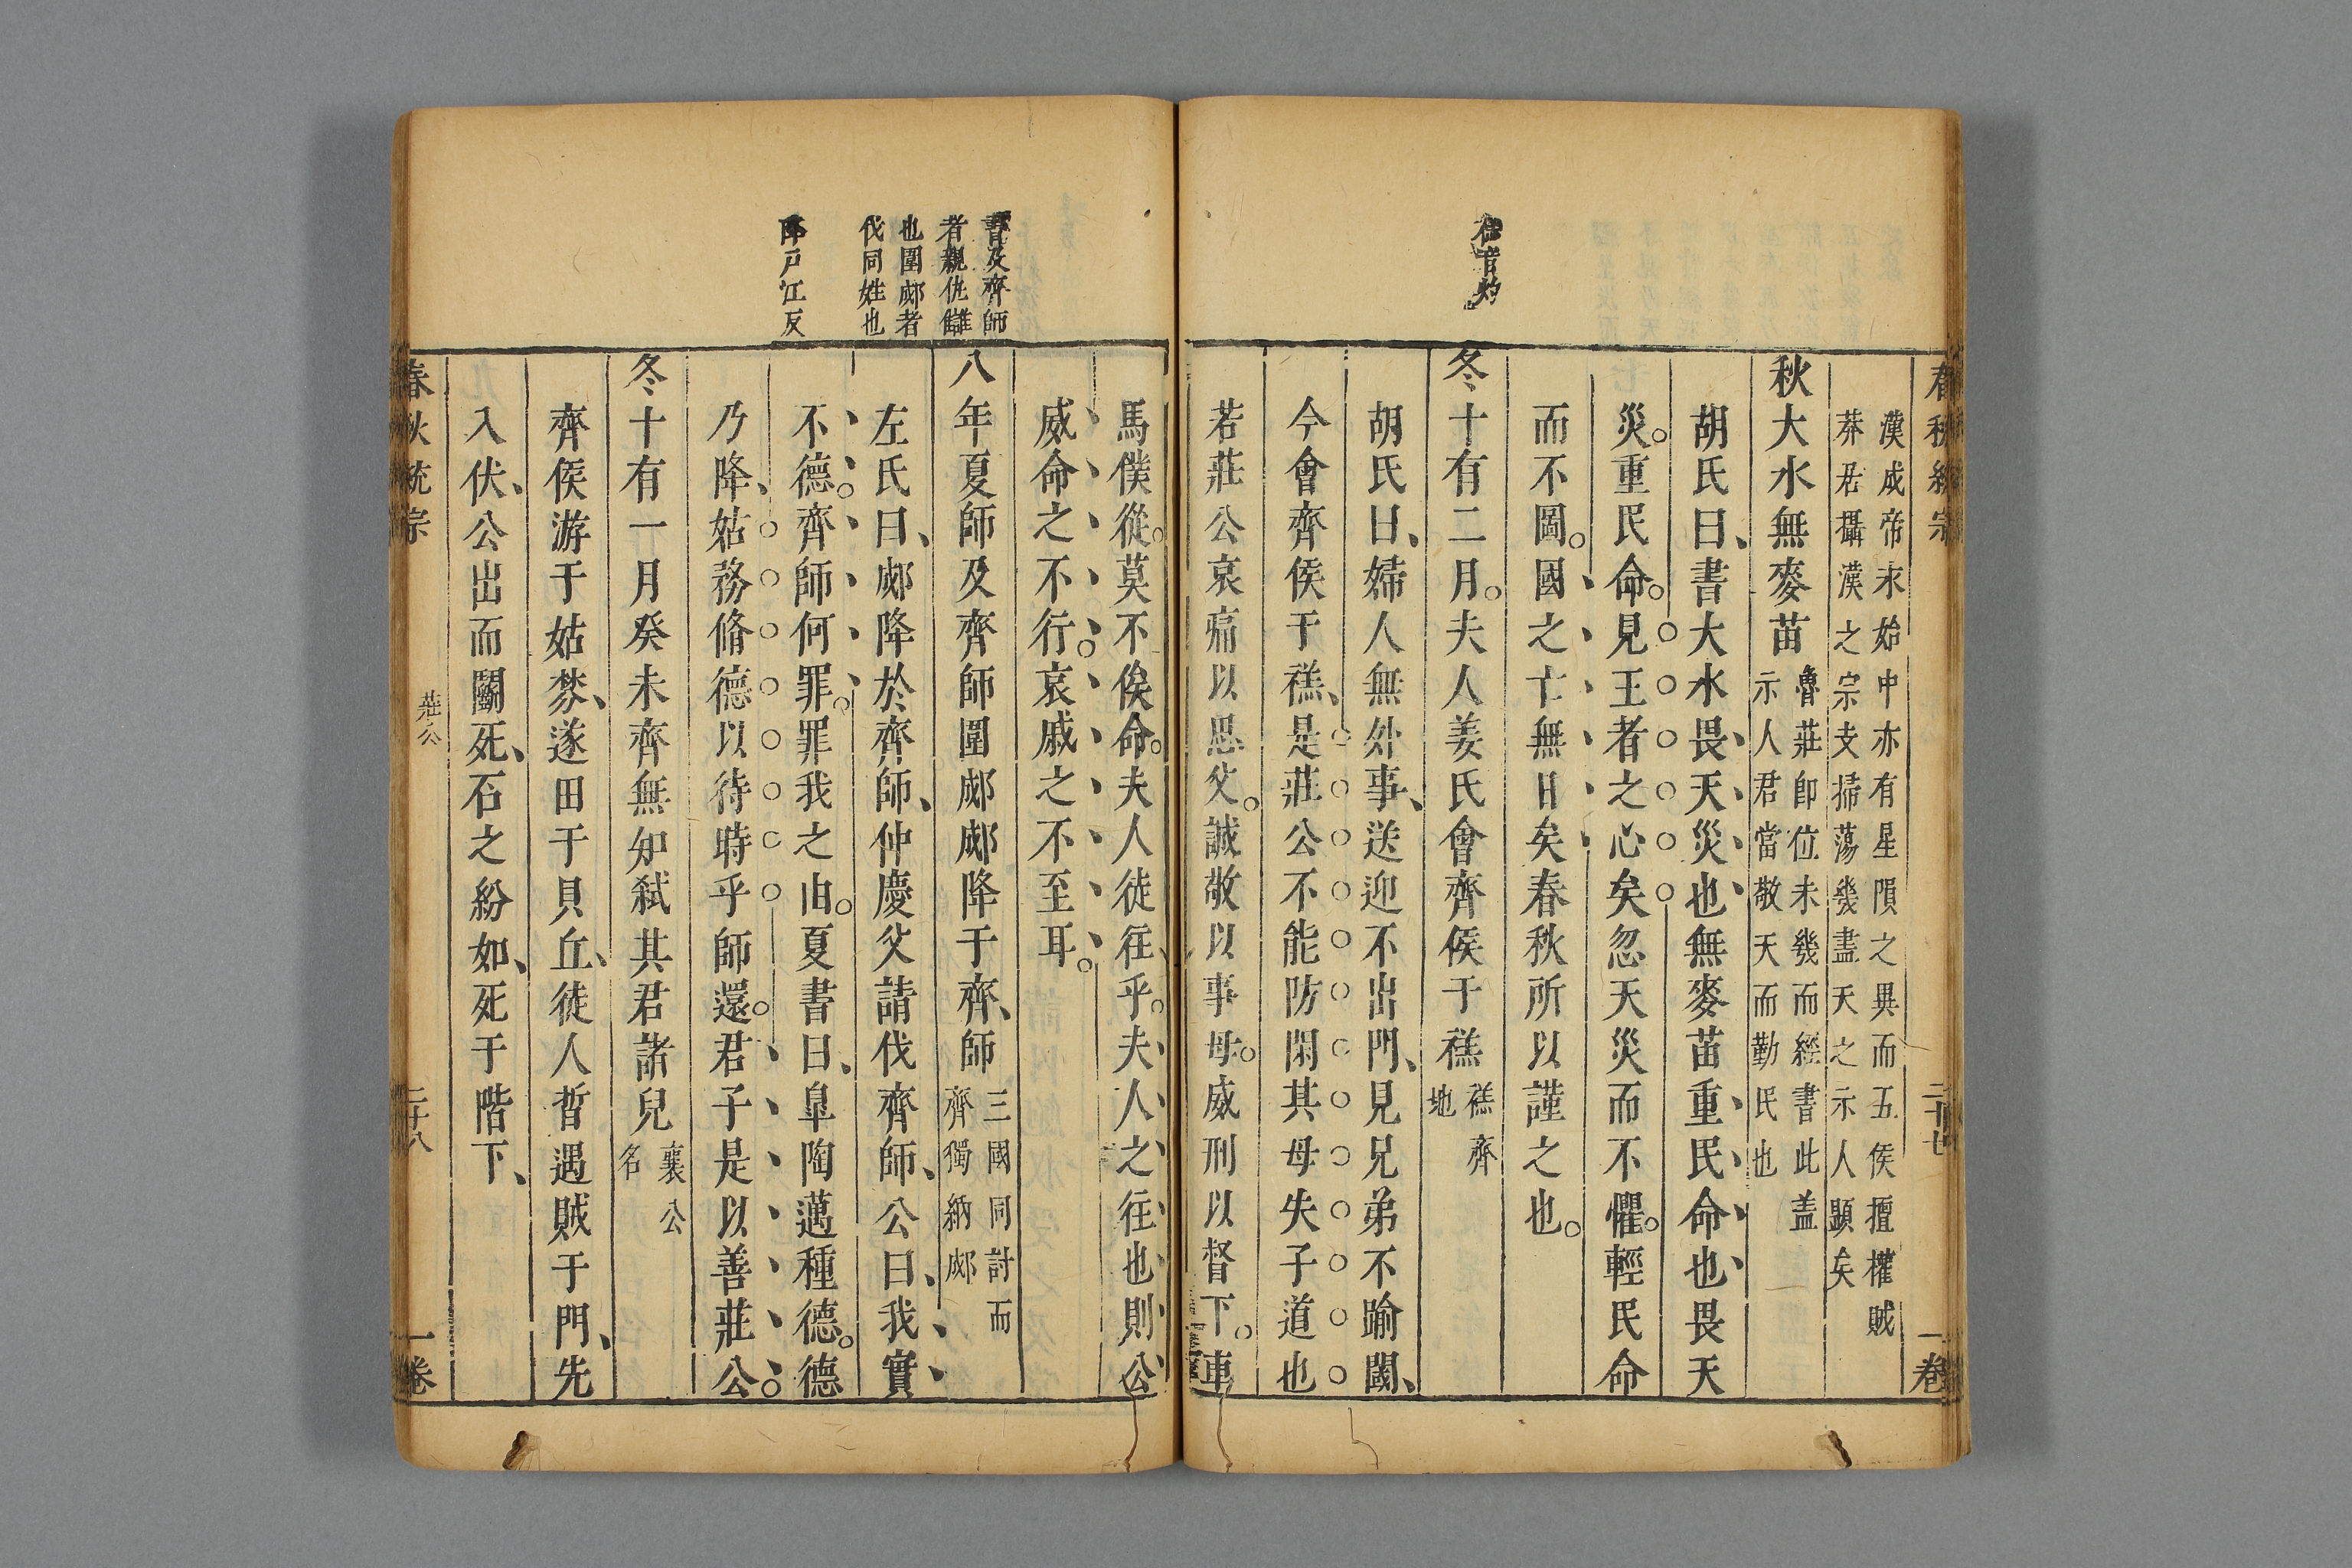 春秋統宗
二十七
一卷
禚音灼
漢成帝末始中亦有星隕之異而五侯擅權賊
莽居攝漢之宗支掃蕩幾盡天之示人顯矣
秋大水無麥苗
魯莊即位未幾而經書此盖
示人君當敬天而勤民也
胡氏曰、書大水畏天災也無麥苗重民命也、畏天
災。重民命。見王者之心矣忽天災而不懼。輕民命
而不圖。國之亡無日矣春秋所以謹之也。
冬十有二月。夫人姜氏會齊侯于禚
禚齊
地
胡氏曰、婦人無外事、送迎不出門、見兄弟不踰閾、
今會齊侯于禚、是莊公不能防閑其母失子道也
若莊公哀痛以思父。誠敬以事母。威刑以督下。車
馬僕從。莫不俟命。夫人徒往乎。夫人之往也則公
威命之不行。哀戚之不至耳。
書及齊師
者親仇讎
也圍郕者
伐同姓也
八年夏師及齊師圍郕郕降于齊、師
三國同討而
齊獨納郕
左氏曰、郕降於齊師、仲慶父請伐齊師、公曰、我實
降戸江反
不德。齊師何罪。罪我之由。夏書曰、皐陶邁種德。德
乃降、姑務脩德以待時乎師還。君子是以善莊公。
冬十有一月癸未齊無知弑其君諸兒
襄公
名
齊侯游于姑棼、遂田于貝丘、徒人哲遇賊于門、先
入伏、公出而鬭死、石之紛如、死于階下、
春秋統宗
莊公
二十八
一卷